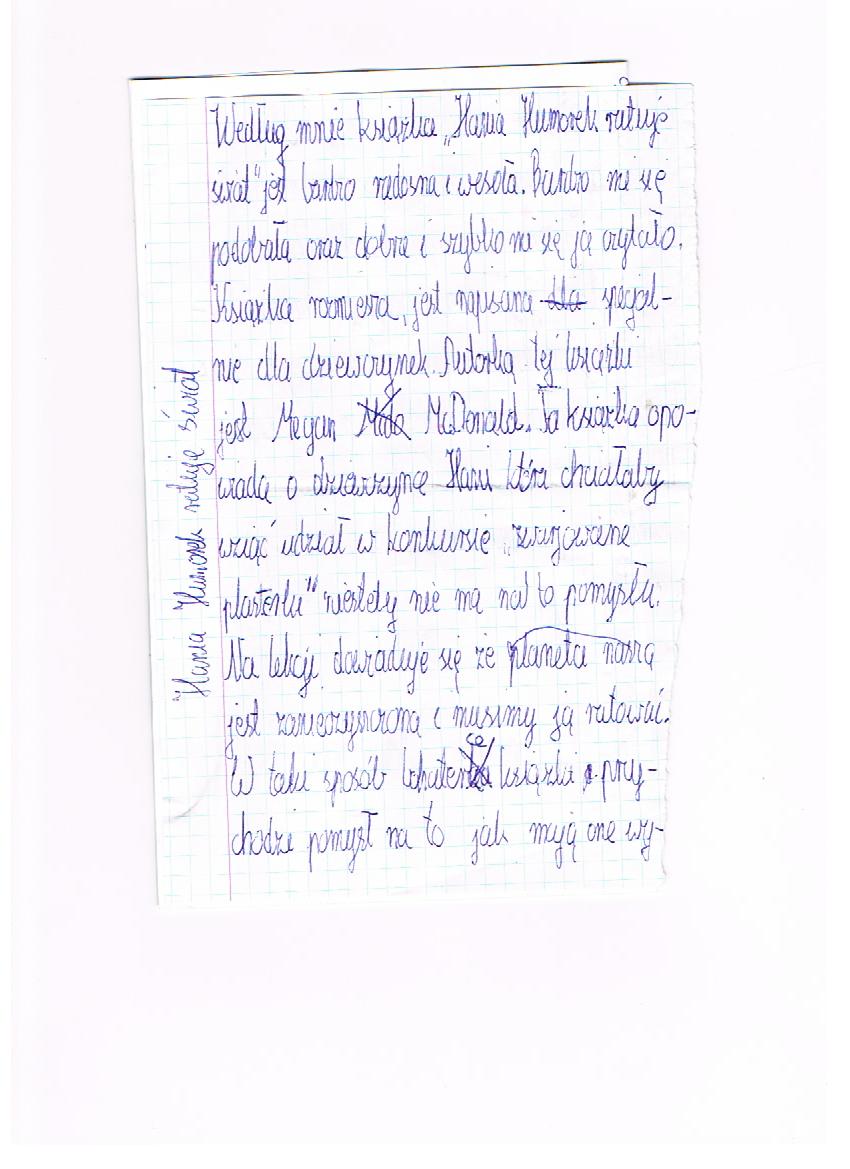 Według mnie książka „Hania Humorek ratuje
świat" jest bardzo radosna i wesoła. Bardzo mi się
podobała oraz dobre i szybko mi się ją czytało.
Książka rozmiesza, jest napisana dla specjal-
nie dla dziewczynek. Autorką tej książki
jest Megan McDonald. Ta książka opo-
wiada o dziewczynce Hani która chciałaby
wziąć udział w konkursie „zwirjowane
plasterki" niestety nie ma nad to pomysłu.
Na lekcji dowiaduje się że planeta naszą
jest zanieczyszczona i musimy ją ratować.
W taki sposób bohaterce książki przy-
chodzi pomysł na to jak mają one wy-
"Hania Humorek ratuje świat